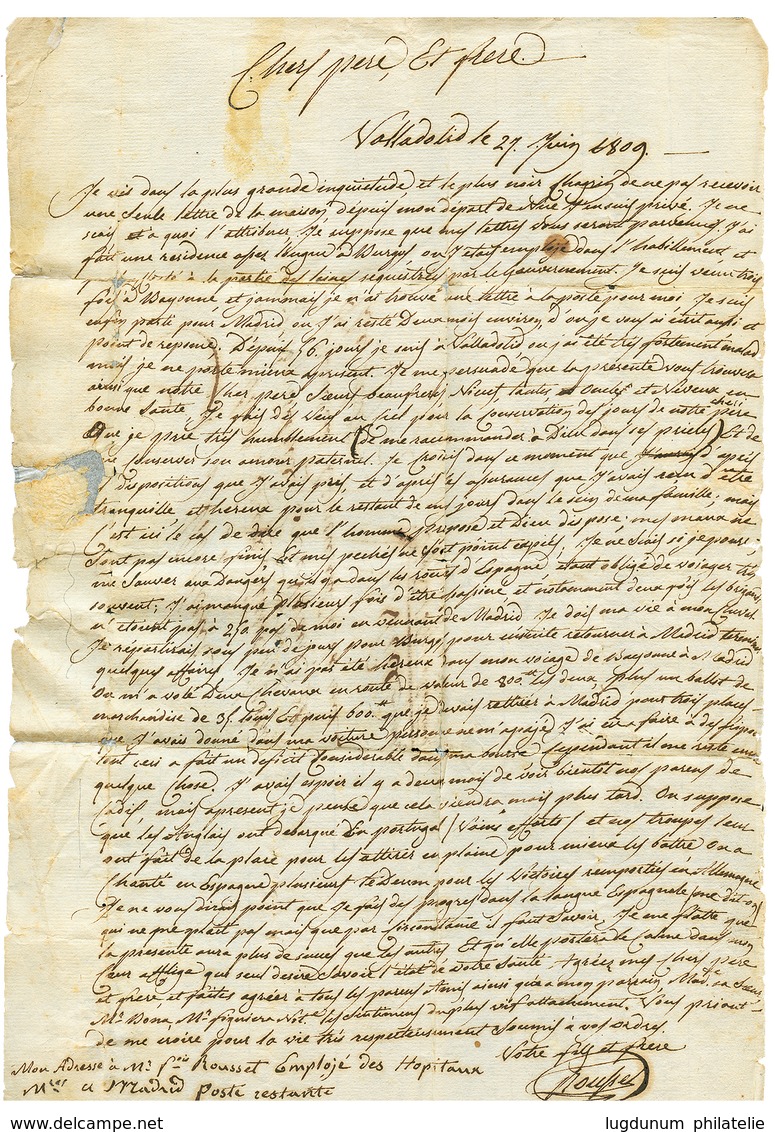 Chers pere, Et frere.
Valladolid le 27. Juin 1809.
Je vis dans la plus grande inquietude et le plus noir Chagrin de ne pas recevoir
une Seule lettre de la maison, depuis mon départ de Nice J'en suis privé. Je ne
scais à quoi l'attribuer. Je suppose que mes lettres vous seront parvenues. J'ai
fait une residence assez longue à Burgos ou J'etois emploje dans l'habillement et
à la partie des laines sequestres par le Gouvernement. Je suis venu trois
fois à Bayonne et jammais je n'ai trouvé une lettre à la poste pour moi. Je suis
enfin parti pour Madrid ou J'ai resté Deux mois environ, d'ou je vous ai écrit aussi et
point de reponse. Dépuis 36. jours je suis à Valladolid ou j'ai été tres fortement malad
mais je me porte mieux apresent. Je me persuade que la présente vous trouvera
ainsi que notre Cher pere Sœurs beaufreres, Nieces, tantes, Oncles et Neveux en
bonne Santé. Je fais des Vœux au Ciel pour la Conservation des jours de notre cheri pere
Que je prie trés humblement (de me racommander à Dieu dans ses prieres) Et de
me Conserver son amour paternel. Je Croiois dans ce moment que d'apres
dispositions que J'avois pris, et d'aprés les assurances que J'avais reçu d'être
tranquille et hereux pour le restant de mes jours dans le sein de ma famille; mais
C'est ici le cas de dire que l'homme propose et Dieu dispose: mes maux ne
Sont pas encore finis, Et mes pechés ne sont point expiés; Je ne Scais si je pourrai
me Sauver aux Dangers qu'il y a dans les routes d'Espagne etant obligé de voiager trés
souvent; J'ai manqué plusieurs fois d'être et notamment deux fois les brigans
n'étoient pas à 250 pas de moi en venant de Madrid. Je dois ma vie à mon
Je repartirai sous peu de jours pour Burgos pour ensuite retourner à Madrid terminer
quelques affaires. Je n'ai pas été hereux dans mon voiage de Bayonne à Madrid
On m'a volé Deux Chevaux en route de valeur de 800 les deux, plus un ballot de
marchandise de 35 louis Et puis 600 que je devois rettirer à Madrid pour trois places
que J'avois donné dans ma voiture personne ne m'a payé; J'ai eu à faire à des fripons
tout ceci a fait un deficit Considerable dans ma bourse Cependant il me reste encor
quelque Chose. J'avais espoir il y a deux mois de voir bientot nos parens de
Cadix mais apresent je pense que cela viendra mais plus tard. On suppose
que les Anglais ont debarqué En portugal (Vains efforts) et nos troupes leur
ont fait de la place pour les attirer en plaine pour mieux les battre On a
Chanté en Espagne plusieurs te Deum pour les Victoires remportés en Allemagne
Je ne vous dirai point que Je fais des progres dans la langue Espagnole,
qui ne me plait pas mais que par Circonstance il faut Savoir. Je me flatte que
la presente aura plus de succes que les autres Et qu'elle portera le Calme dans mon
Cœur affligé qui seul desire Savoir l'état de votre Santé. Agréez mes Chers pere
et frere, et faites agréer à tous les parens Amis ainsi que à mon parrain, Mad.e sa Sœur
Mr. Bona, Mr. les Sentimens du plus vif attachement. Vous priant
de me croire pour la vie trés respecteusement Soumis à vos ordres.
Votre fils et frere
Rousset
Mon Adresse à Mr. fois Rousset Emploje des Hopitaux
Mres a Madrid Poste restante
www.delcampe.net
lugdunum philatelie